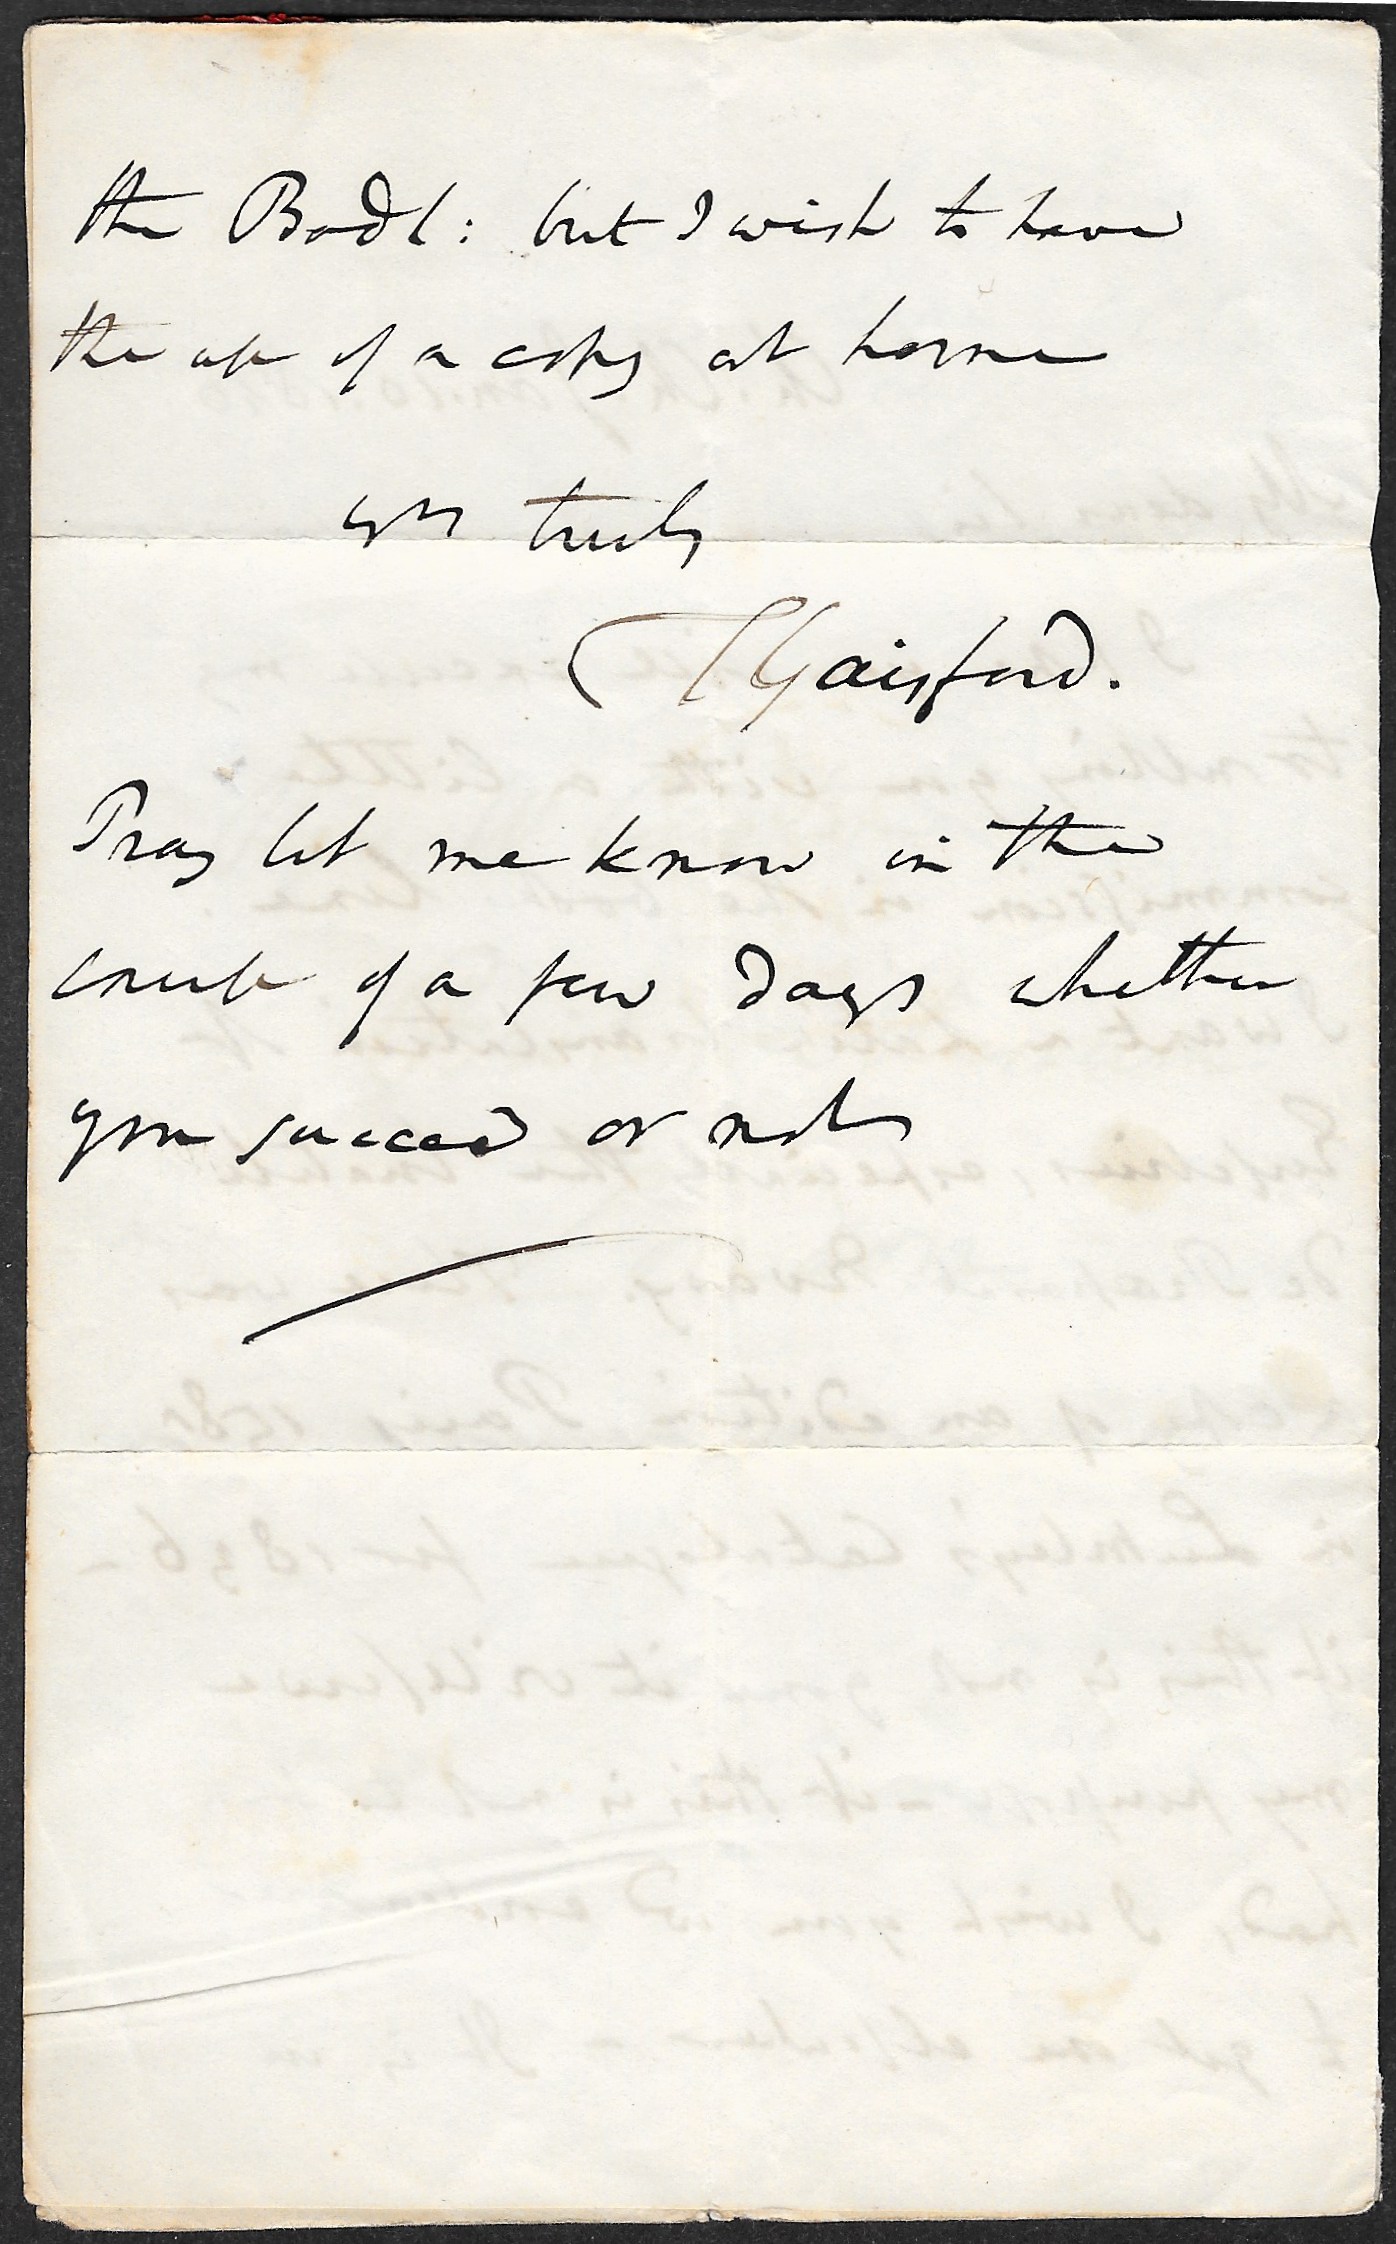 the Bodl: but I wish to have
the use of a copy at home
yrs truly
T Gaisford.
Pray let me know in the
course of a few days whether
you succeed or not